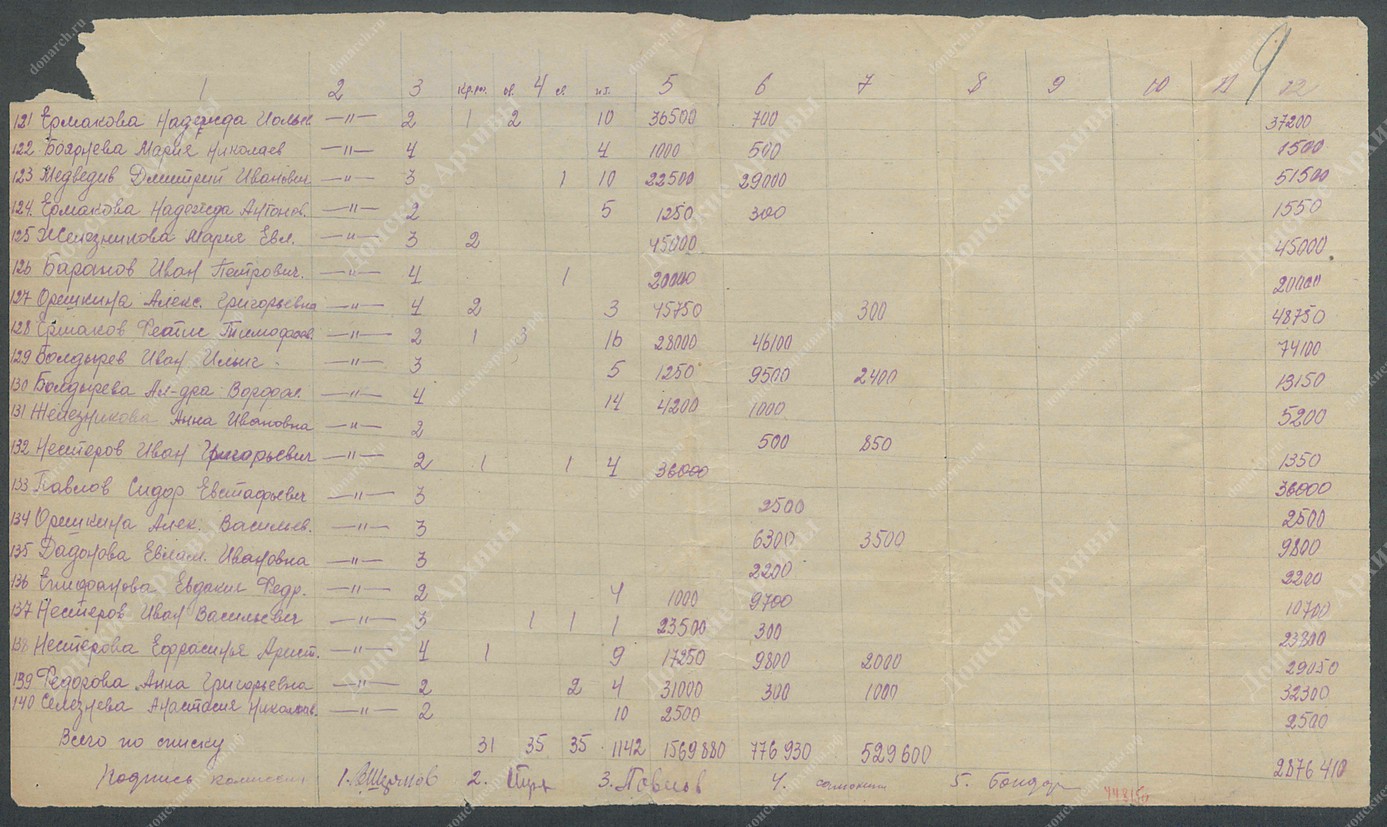 9
1 2 3 кр.рог. ов. 4 св. пт. 5 6 7 8 9 10 11 12
121 Ермакова Надежда —"— 2 1 2 10 36500 700 37200
122 Боярнева Мария Николаев —"— 4 4 1000 500 1500
123 Медведив Дмитрий Иванович —"— 3 1 10 22500 29000 51500
124. Ермакова Надежда Антонов. —"— 2 5 1250 300 1550
125 Железникова Мария Евл. —"— 3 2 45000 45000
126 Баранов Иван Петрович. —"— 4 1 20000 20000
127 Орешкина Алекс. Григорьевна —"— 4 2 3 45750 300 48750
128 Ермаков Тимофеев. —"— 2 1 3 16 28000 46100 74100
129 Болдырев Иван Ильич —"— 3 5 1250 9500 2400 13150
130 Болдырева Ал-дра —"— 4 14 4200 1000 5200
131 Железникова Анна Ивановна —"— 2 500 850 1350
132 Нестеров Иван Григорьевич —"— 2 1 1 4 36000 36000
133 Павлов Сидор Евстафьевич —"— 3 2500 2500
134 Орешкина Алек. Васильев. —"— 3 6300 3500 9800
135 Дадонова Евлам. Ивановна —"— 3 2200 2200
136 Епифанова Евдокия Федр. —"— 2 4 1000 9700 10700
137 Нестеров Иван Васильевич —"— 3 1 1 1 23500 300 23800
138 Нестерова Ефрасинья Арист. —"— 4 1 9 17250 9800 2000 29050
139 Федорова Анна Григорьевна —"— 2 2 4 31000 300 1000 32300
140 Селезнева Анастасия Николаев. —"— 2 10 2500 2500
Всего по списку 31 35 35 1142 1569880 776930 529600 2876410
Подпись комиссии 1. 2. 3. Павлов 4. 5. Бондар